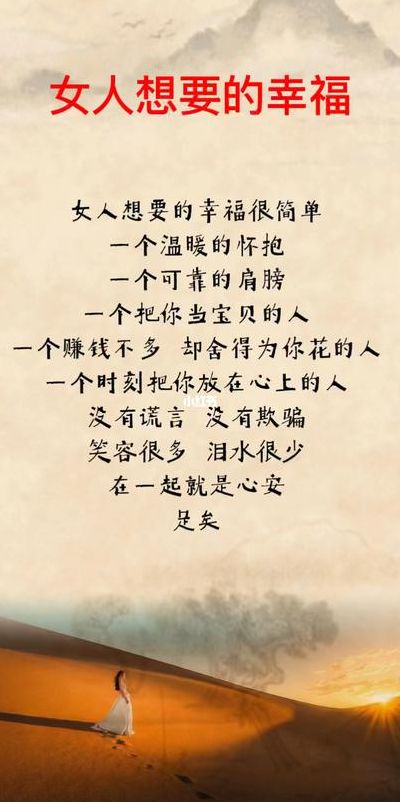 女人想要的幸福
女人想要的幸福很简单
一个温暖的怀抱
一个可靠的肩膀
一个把你当宝贝的人
一个赚钱不多 却舍得为你花的人
一个时刻把你放在心上的人
小红书
没有谎言 没有欺骗
笑容很多 泪水很少
在一起就是心安
足矣